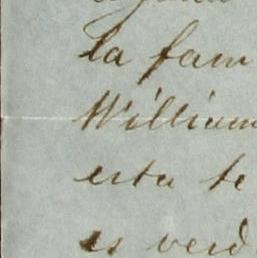 la fam
William
esta te
es verd